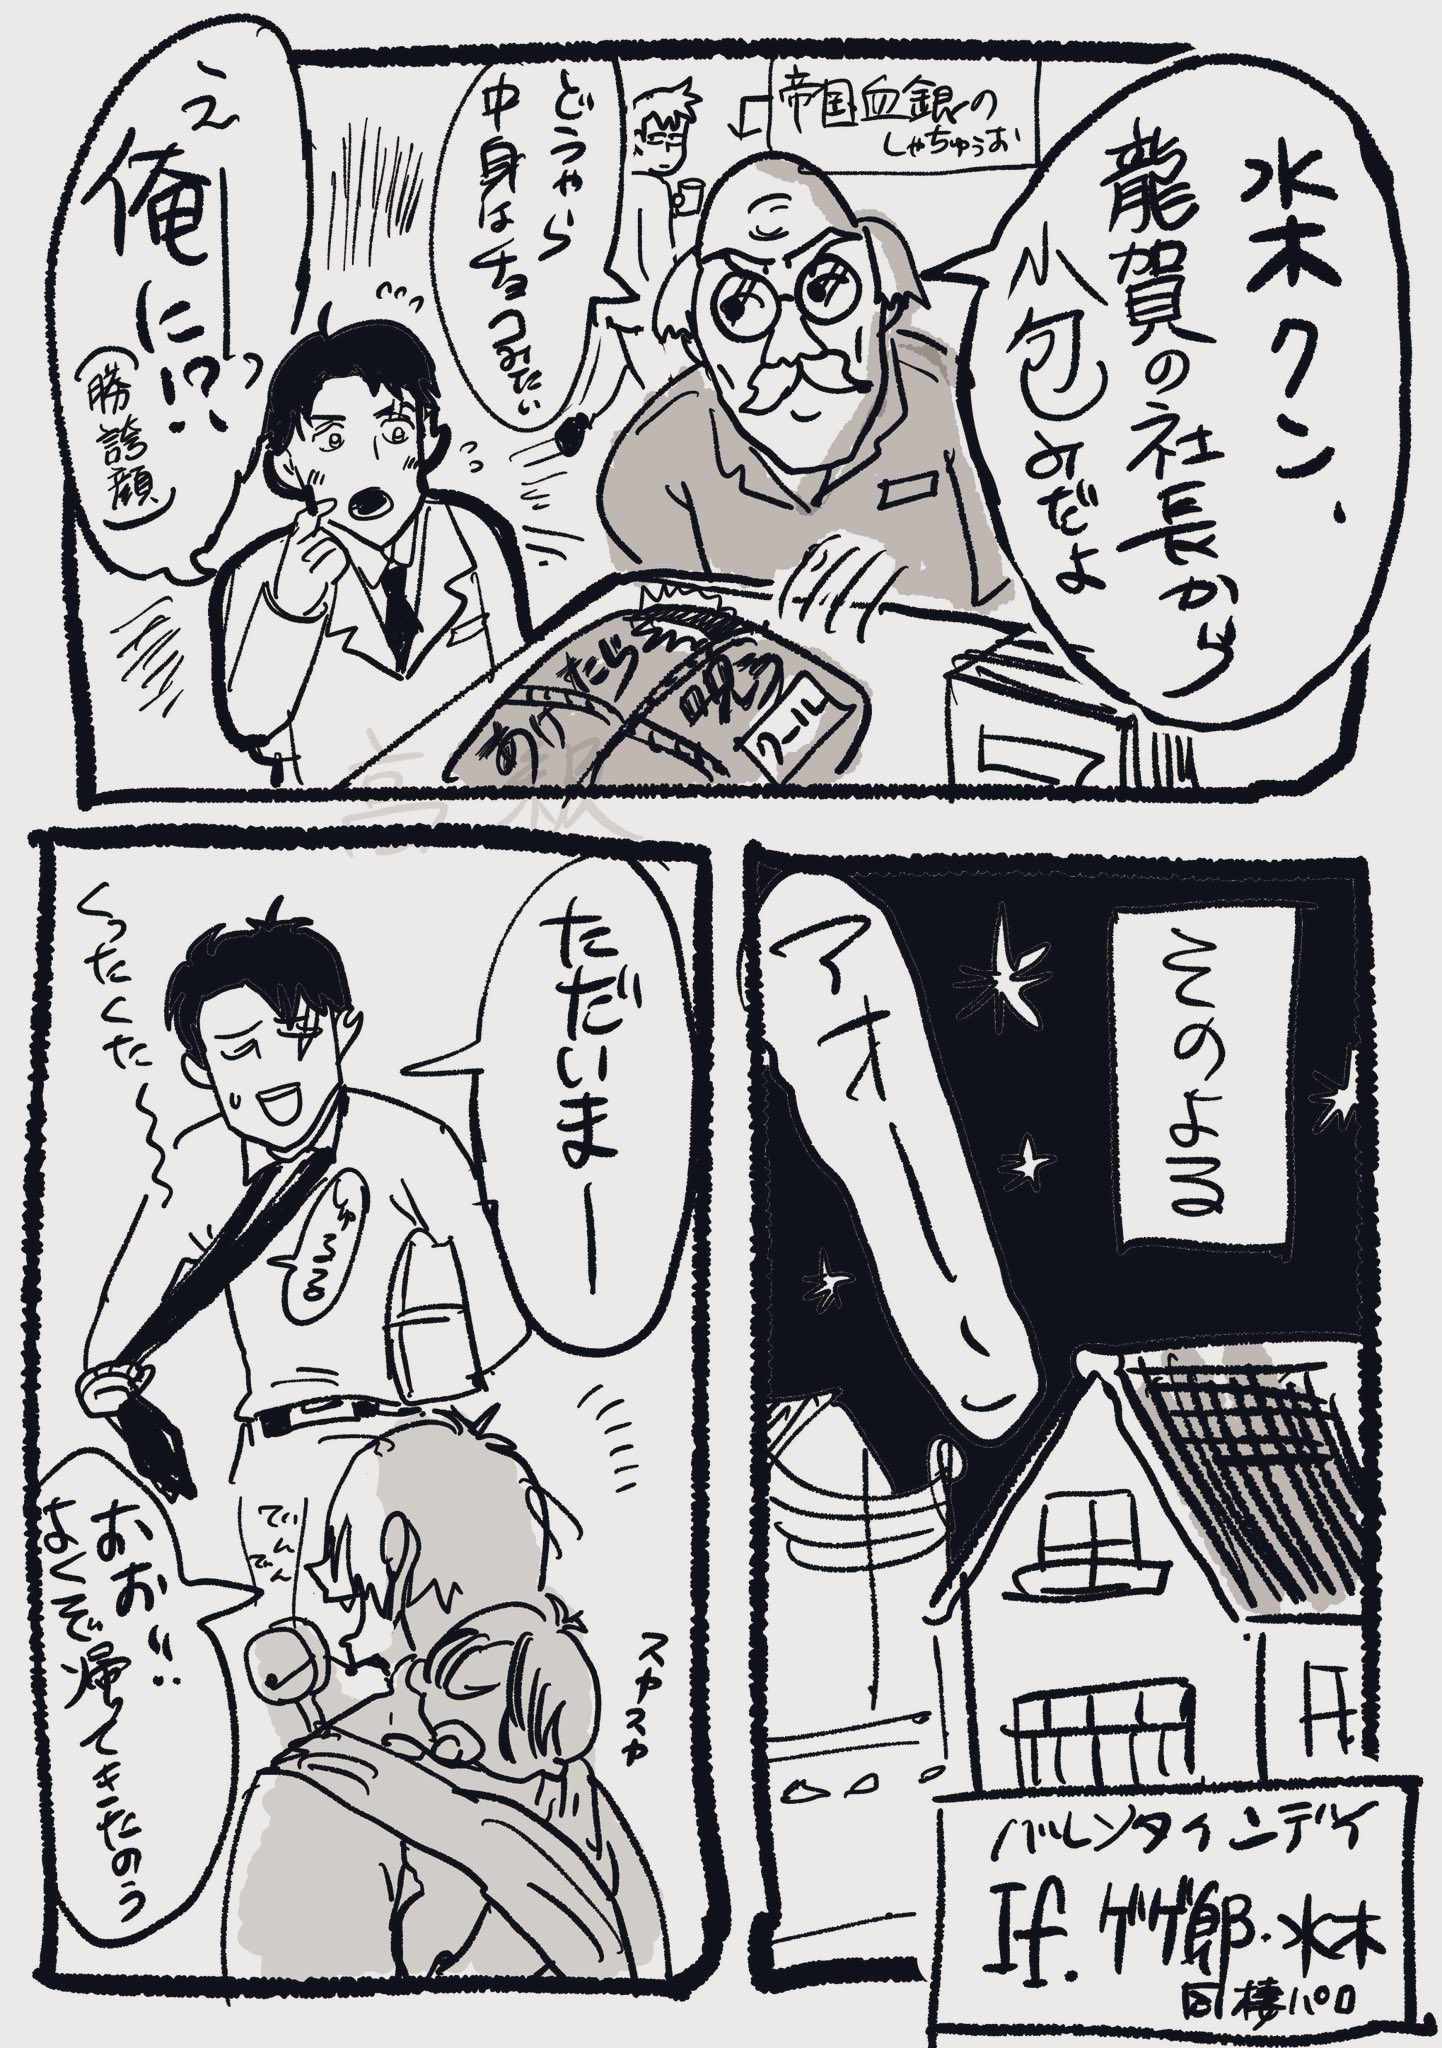 水木クン、
龍賀の社長から
小包みだよ
帝国血銀の
しゃちゅうお
どうやら
中身は
チョコみたい
え
俺に!?
(勝誇顔)
クール
そのよる
アオーン
ただいまー
くったくた〜
しゅるる
おお!!
よくぞ帰ってきたのう
でんでん
スヤスヤ
バレンタインデイ
If. ゲゲ郎・水木
同棲パロ